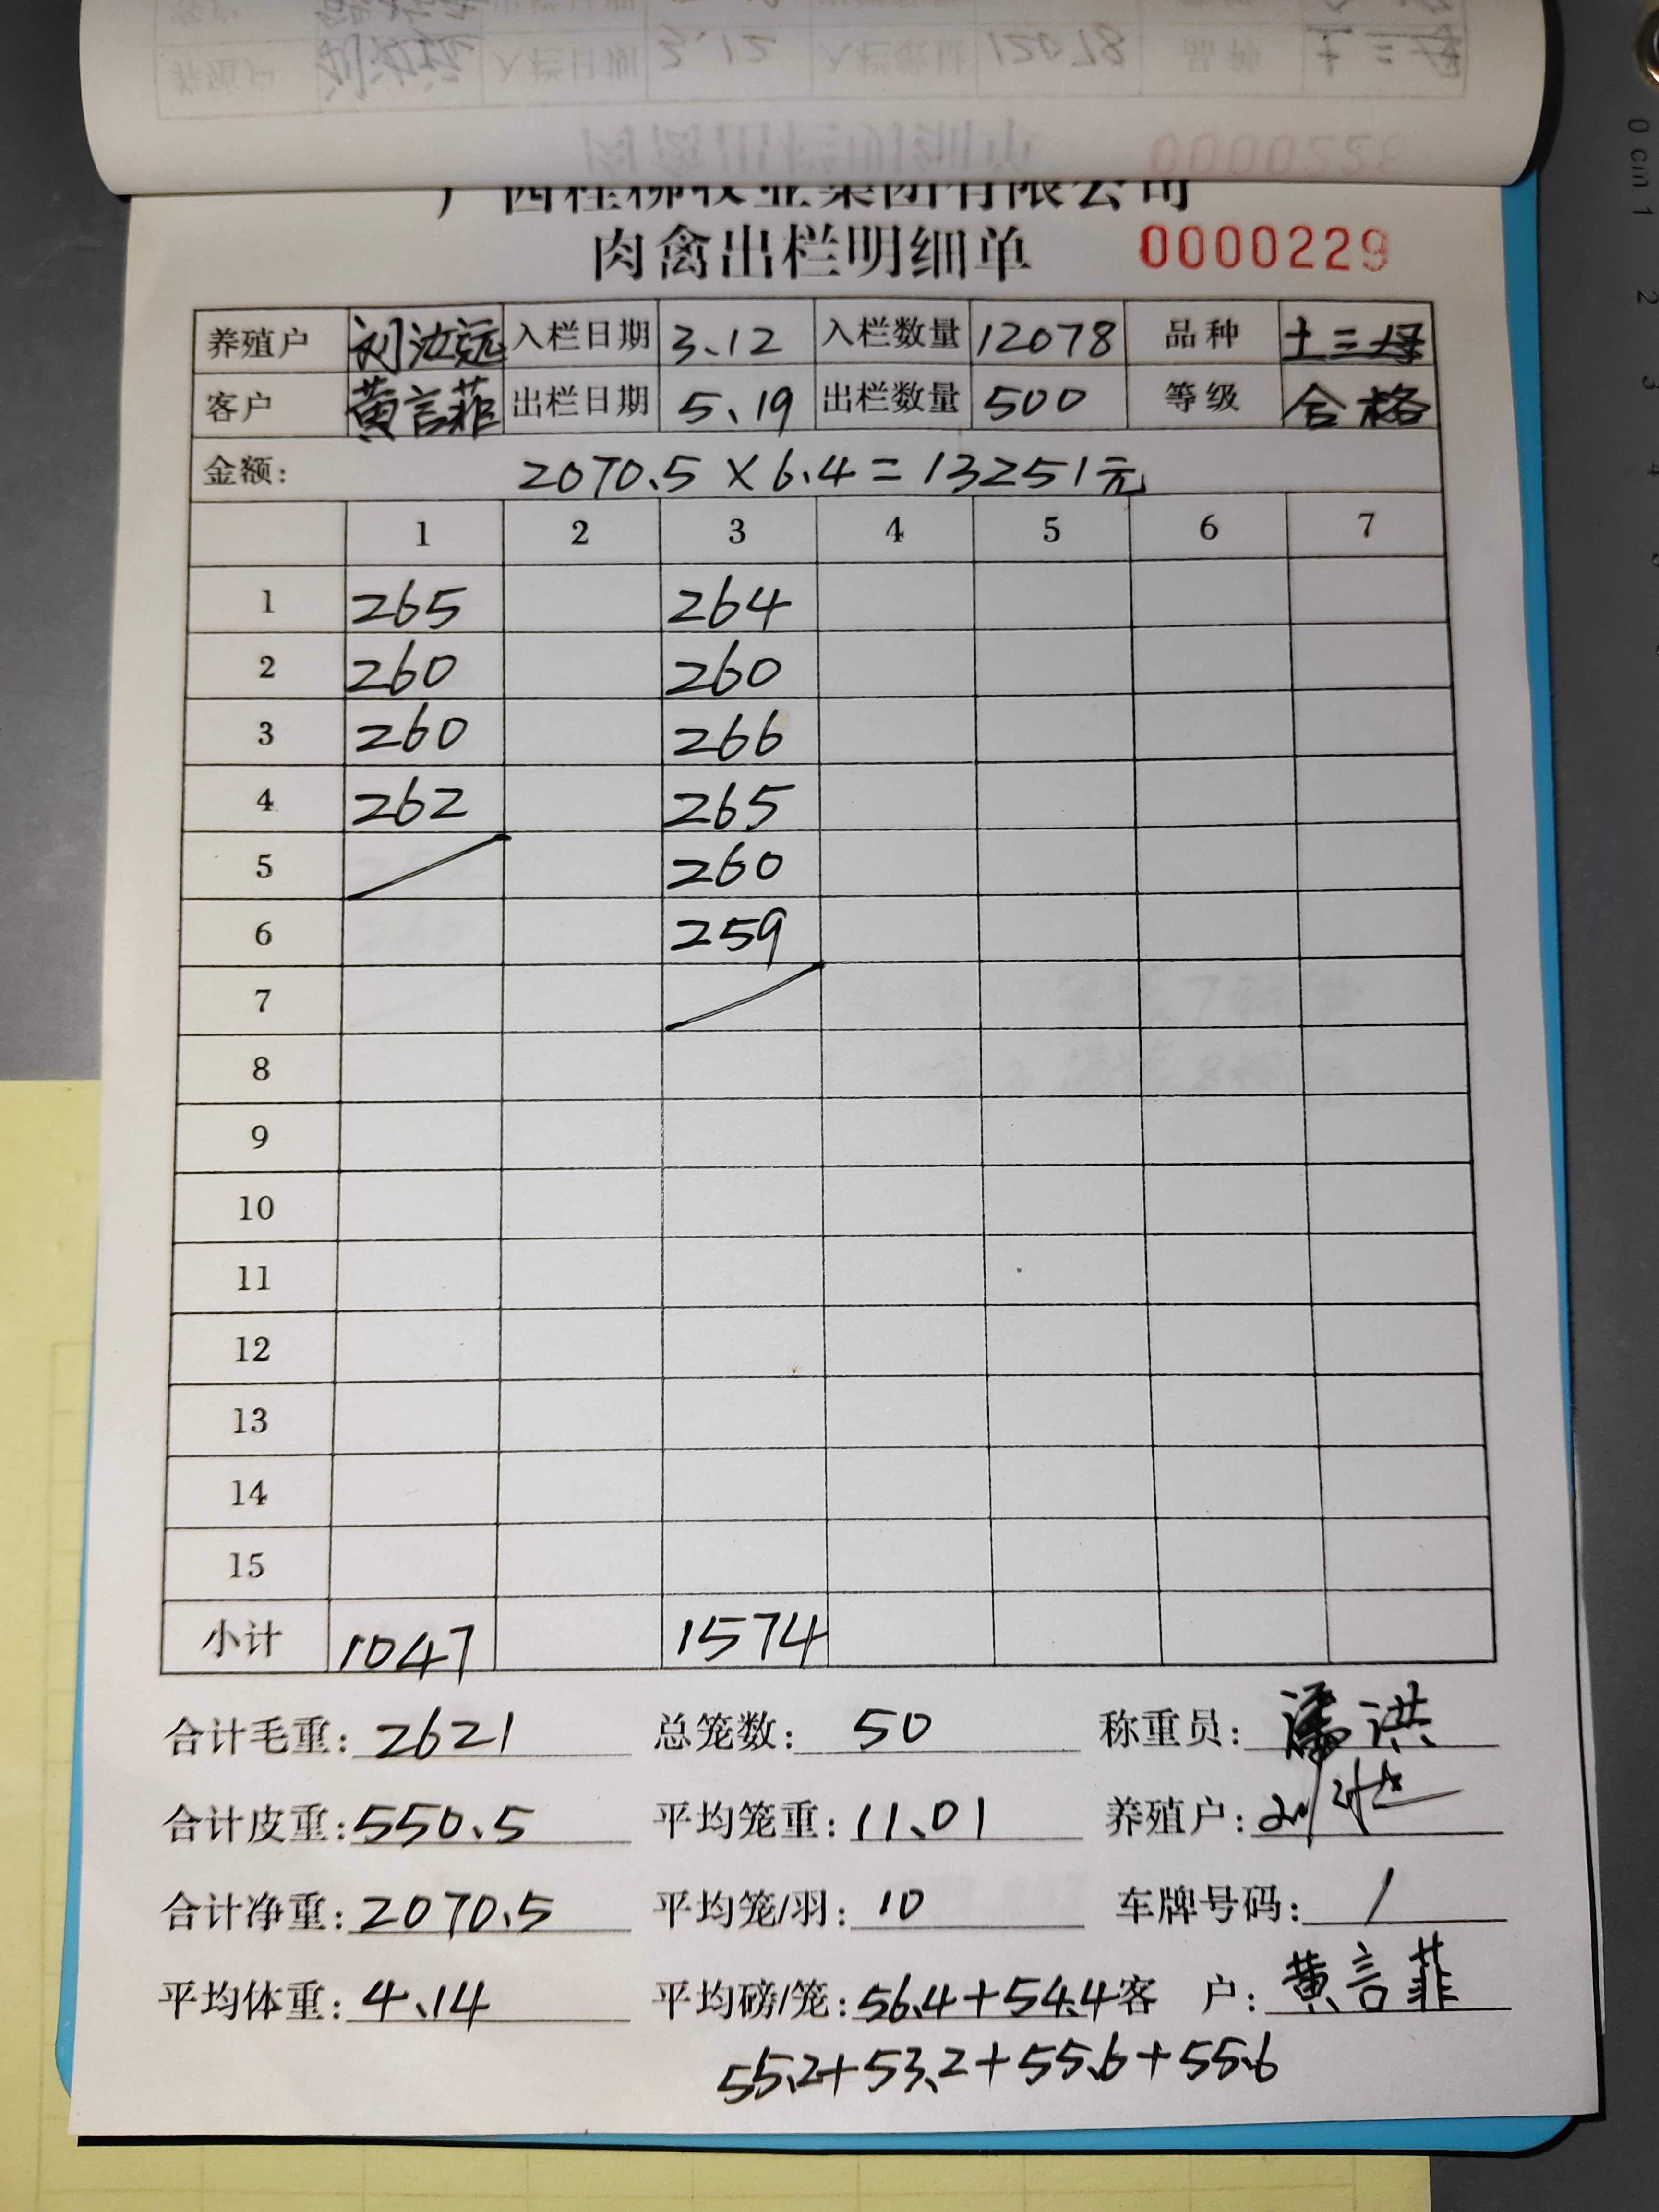 广西桂柳牧业集团有限公司
肉禽出栏明细单 0000229
养殖户 刘汝远 入栏日期 3.12 入栏数量 12078 品种 土三母
客户 黄言菲 出栏日期 5.19 出栏数量 500 等级 合格
金额: 2070.5×6.4=13251元
1 2 3 4 5 6 7
1 265 264
2 260 260
3 260 266
4 262 265
5 260
6 259
7
8
9
10
11
12
13
14
15
小计 1047 1574
合计毛重: 2621 总笼数: 50 称重员: 潘洪
合计皮重: 550.5 平均笼重: 11.01 养殖户:
合计净重: 2070.5 平均笼/羽: 10 车牌号码: /
平均体重: 4.14 平均磅/笼: 56.4+54.4 客户: 黄言菲
55.2+53.2+55.6+55.6